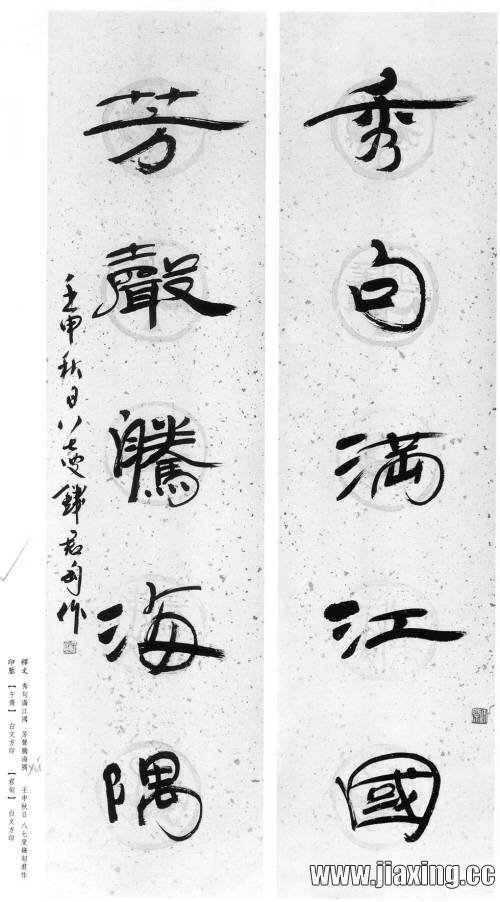 秀句満江國
芳聲騰海隅
壬申秋日八七叟錢君匋作
釋文 秀句滿江國 芳聲騰海隅 壬申秋日 八七叟錢匋君作
印鑒 【午齋】 白文方印 【君匋】 白文方印
yú
www.jiaxing.cc